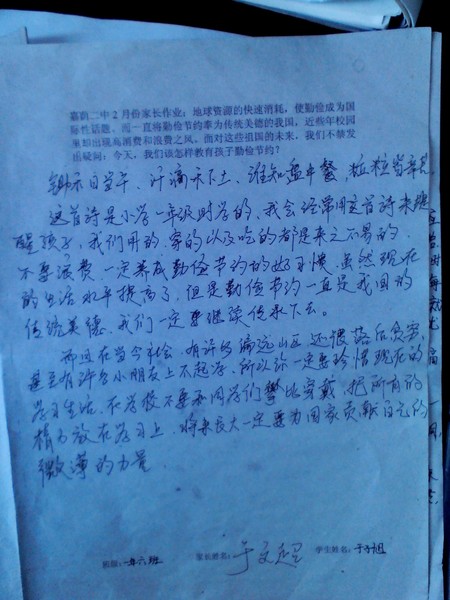 嘉荫二中2月份家长作业：地球资源的快速消耗，使勤俭成为国
际性话题。而一直将勤俭节约奉为传统美德的我国，近些年校园
里却出现高消费和浪费之风。面对这些祖国的未来，我们不禁发
出疑问：今天，我们该怎样教育孩子勤俭节约？
锄禾日当午，汗滴禾下土，谁知盘中餐，粒粒皆辛苦。
这首诗是小学一年级时学的，我会经常用这首诗来提
醒孩子，我们用的、穿的以及吃的都是来之不易的，
不要浪费，一定养成勤俭节约的好习惯，虽然现在
的生活水平提高了，但是勤俭节约一直是我国的
传统美德，我们一定要继续传承下去。
而且在当今社会，有许多偏远山区还很落后贫穷，
甚至有许多小朋友上不起学，所以你一定要珍惜现在的
学习生活，在学校不要和同学们攀比穿戴，把所有的
精力放在学习上，将来长大一定要为国家贡献自己的
微薄的力量
班级：一年六班 家长姓名：于文超 学生姓名：于子旭